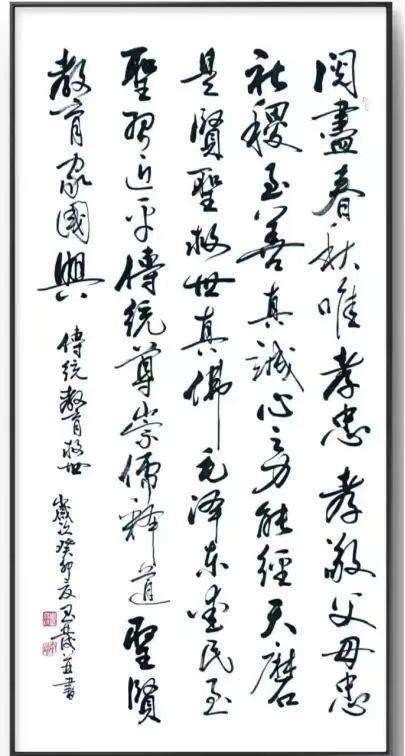 閱盡春秋唯孝忠孝敬父母忠
社稷至善真誠心之力能經天磨
是賢聖救世真佛毛泽东愛民至
聖習近平傳統尊崇儒释道聖賢
教育家國興
傳統教育救世
歲次癸卯夏並書